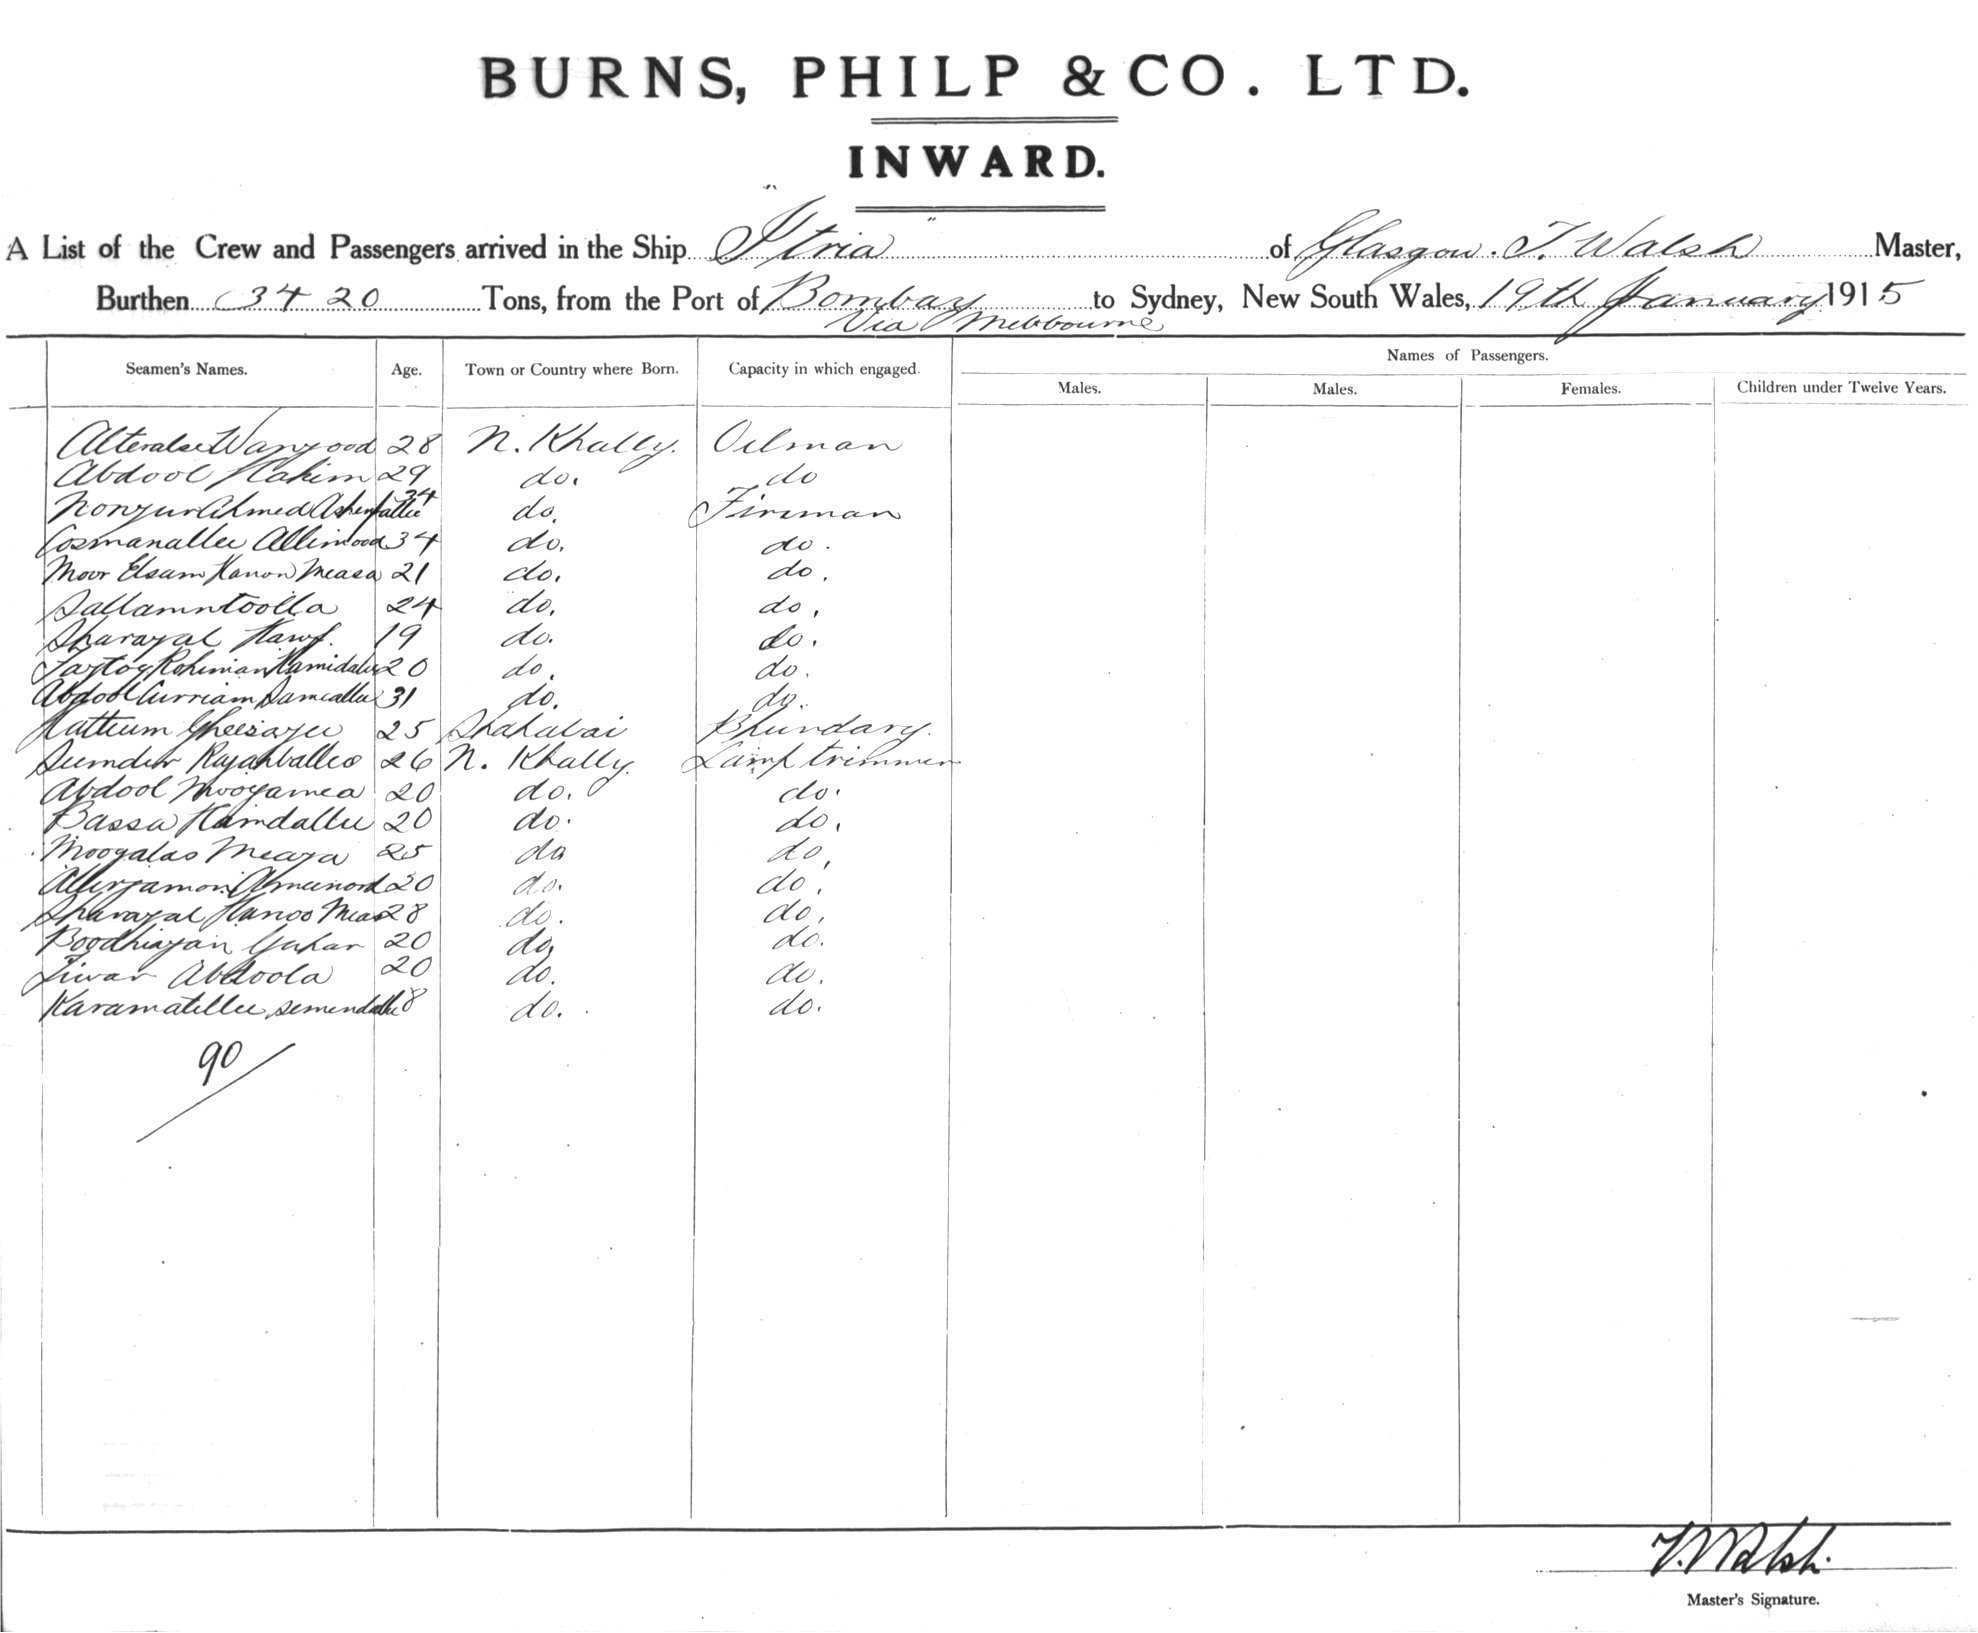 BURNS, PHILP & CO. LTD.
INWARD.
A List of the Crew and Passengers arrived in the Ship "Itria" of Glasgow. T. Walsh Master,
Burthen 3420 Tons, from the Port of Bombay to Sydney, New South Wales, 19th January 1915
Via Melbourne
Names of Passengers.
Seamen's Names. Age. Town or Country where Born. Capacity in which engaged. Males. Males. Females. Children under Twelve Years.
28 N. Khally. Oilman
Abdool Hakim 29 do. do
34
Ahmed do. Fireman
34 do. do.
Moor Elsam Measa 21 do. do.
Sallamntoolla 24 do. do.
Sharayal 19 do. do.
20 do. do.
Abdool Curriam 31 do. do.
25 Shahabai Bhundary.
26 N. Khally. Lamptrimmer
Abdool Mooyamea 20 do. do.
Bassa Hamdallee 20 do. do.
Moogalas Meaya 25 do do,
20 do. do.
Sharayal Hanoo Mea 28 do. do.
20 do, do.
Abdoola 20 do. do.
Karamatellee 18 do. do.
90
T. Walsh.
Master's Signature.